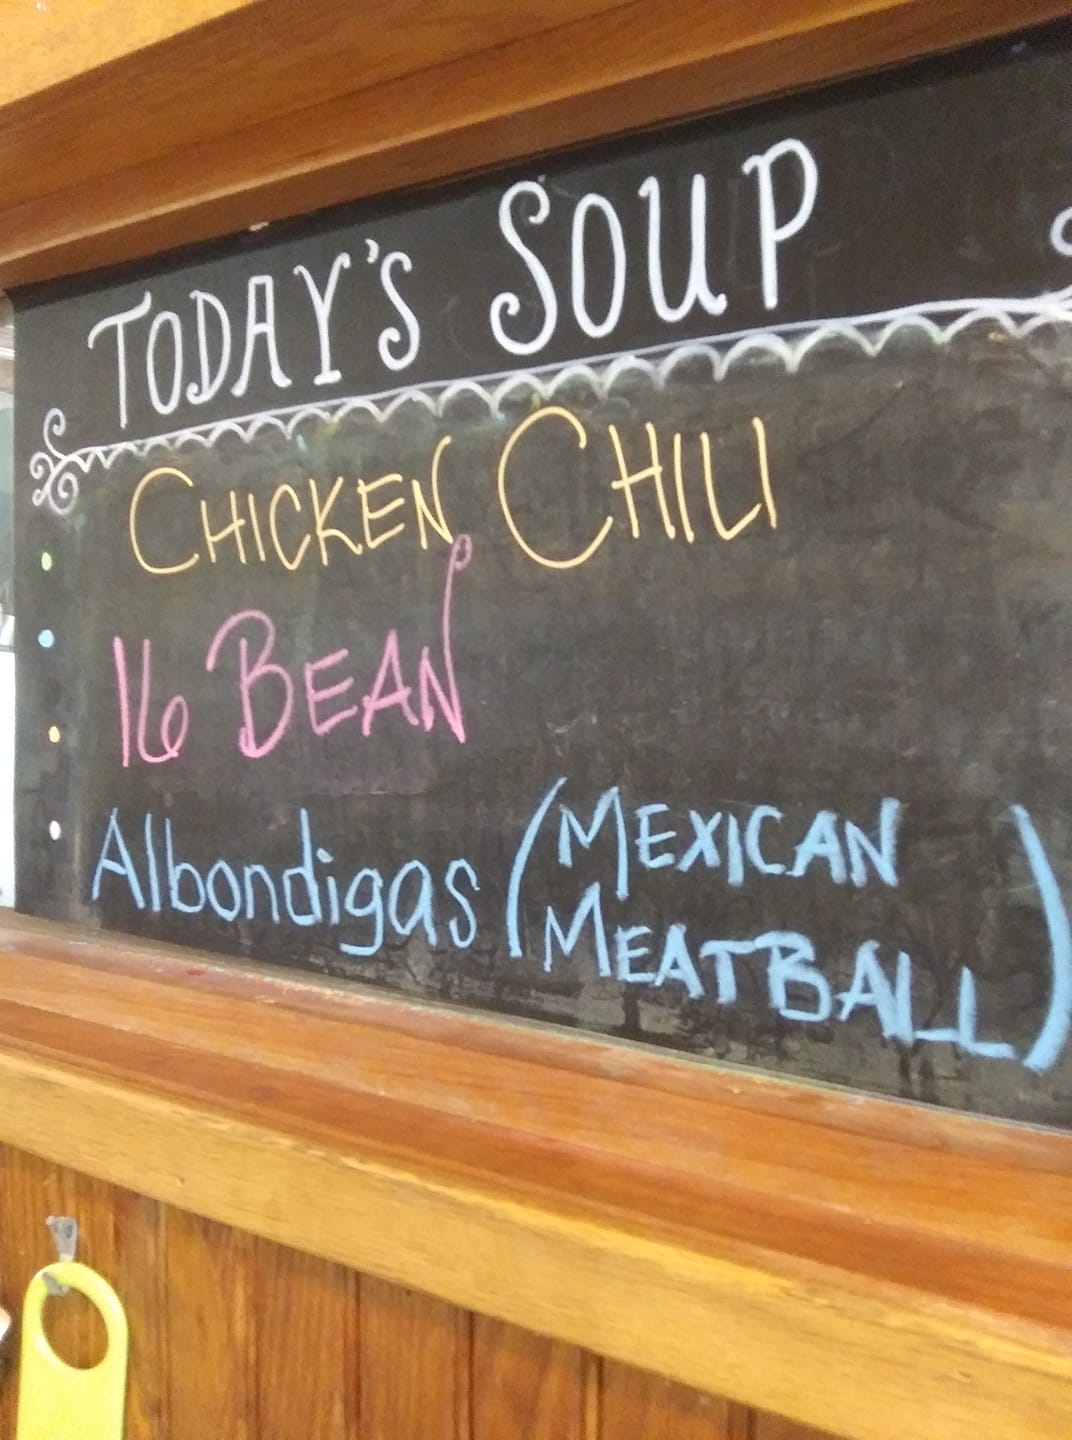 TODAY'S SOUP
CHICKEN CHILI
16 BEAN
Albondigas (MEXICAN
MEATBALL)